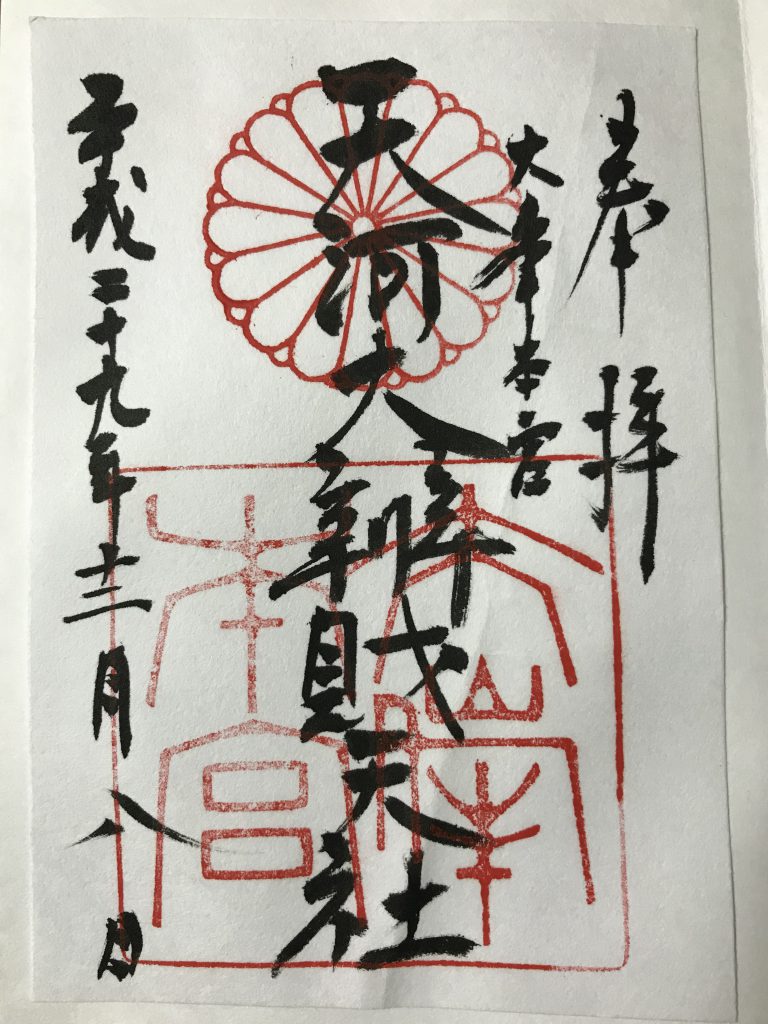 奉拝
大峯本宮
天河大辨財天社
平成二十九年十二月八日
大峯本宮